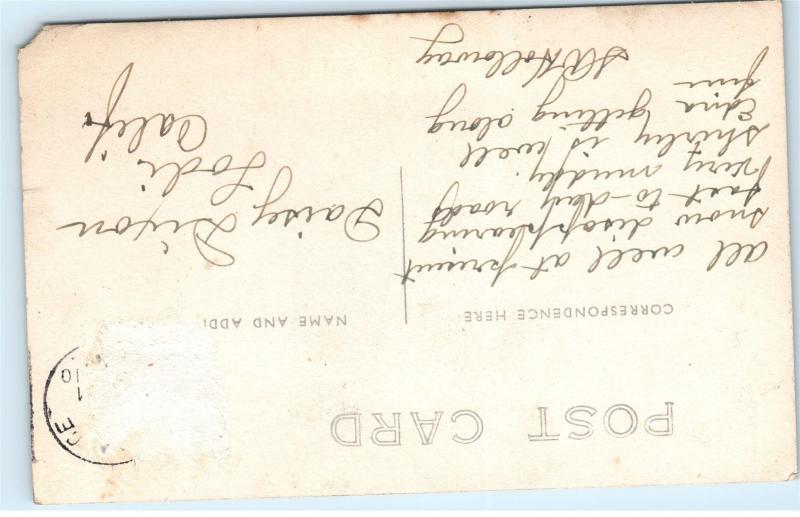 POST CARD
CORRESPONDENCE HERE
NAME AND ADD
CE
1
10
all well at present
snow disappearing
fast to-day roads
very muddy.
Shirley is well
Edna getting along
fine
S A Holloway
Daisy Dixon
Lodi
Calif.